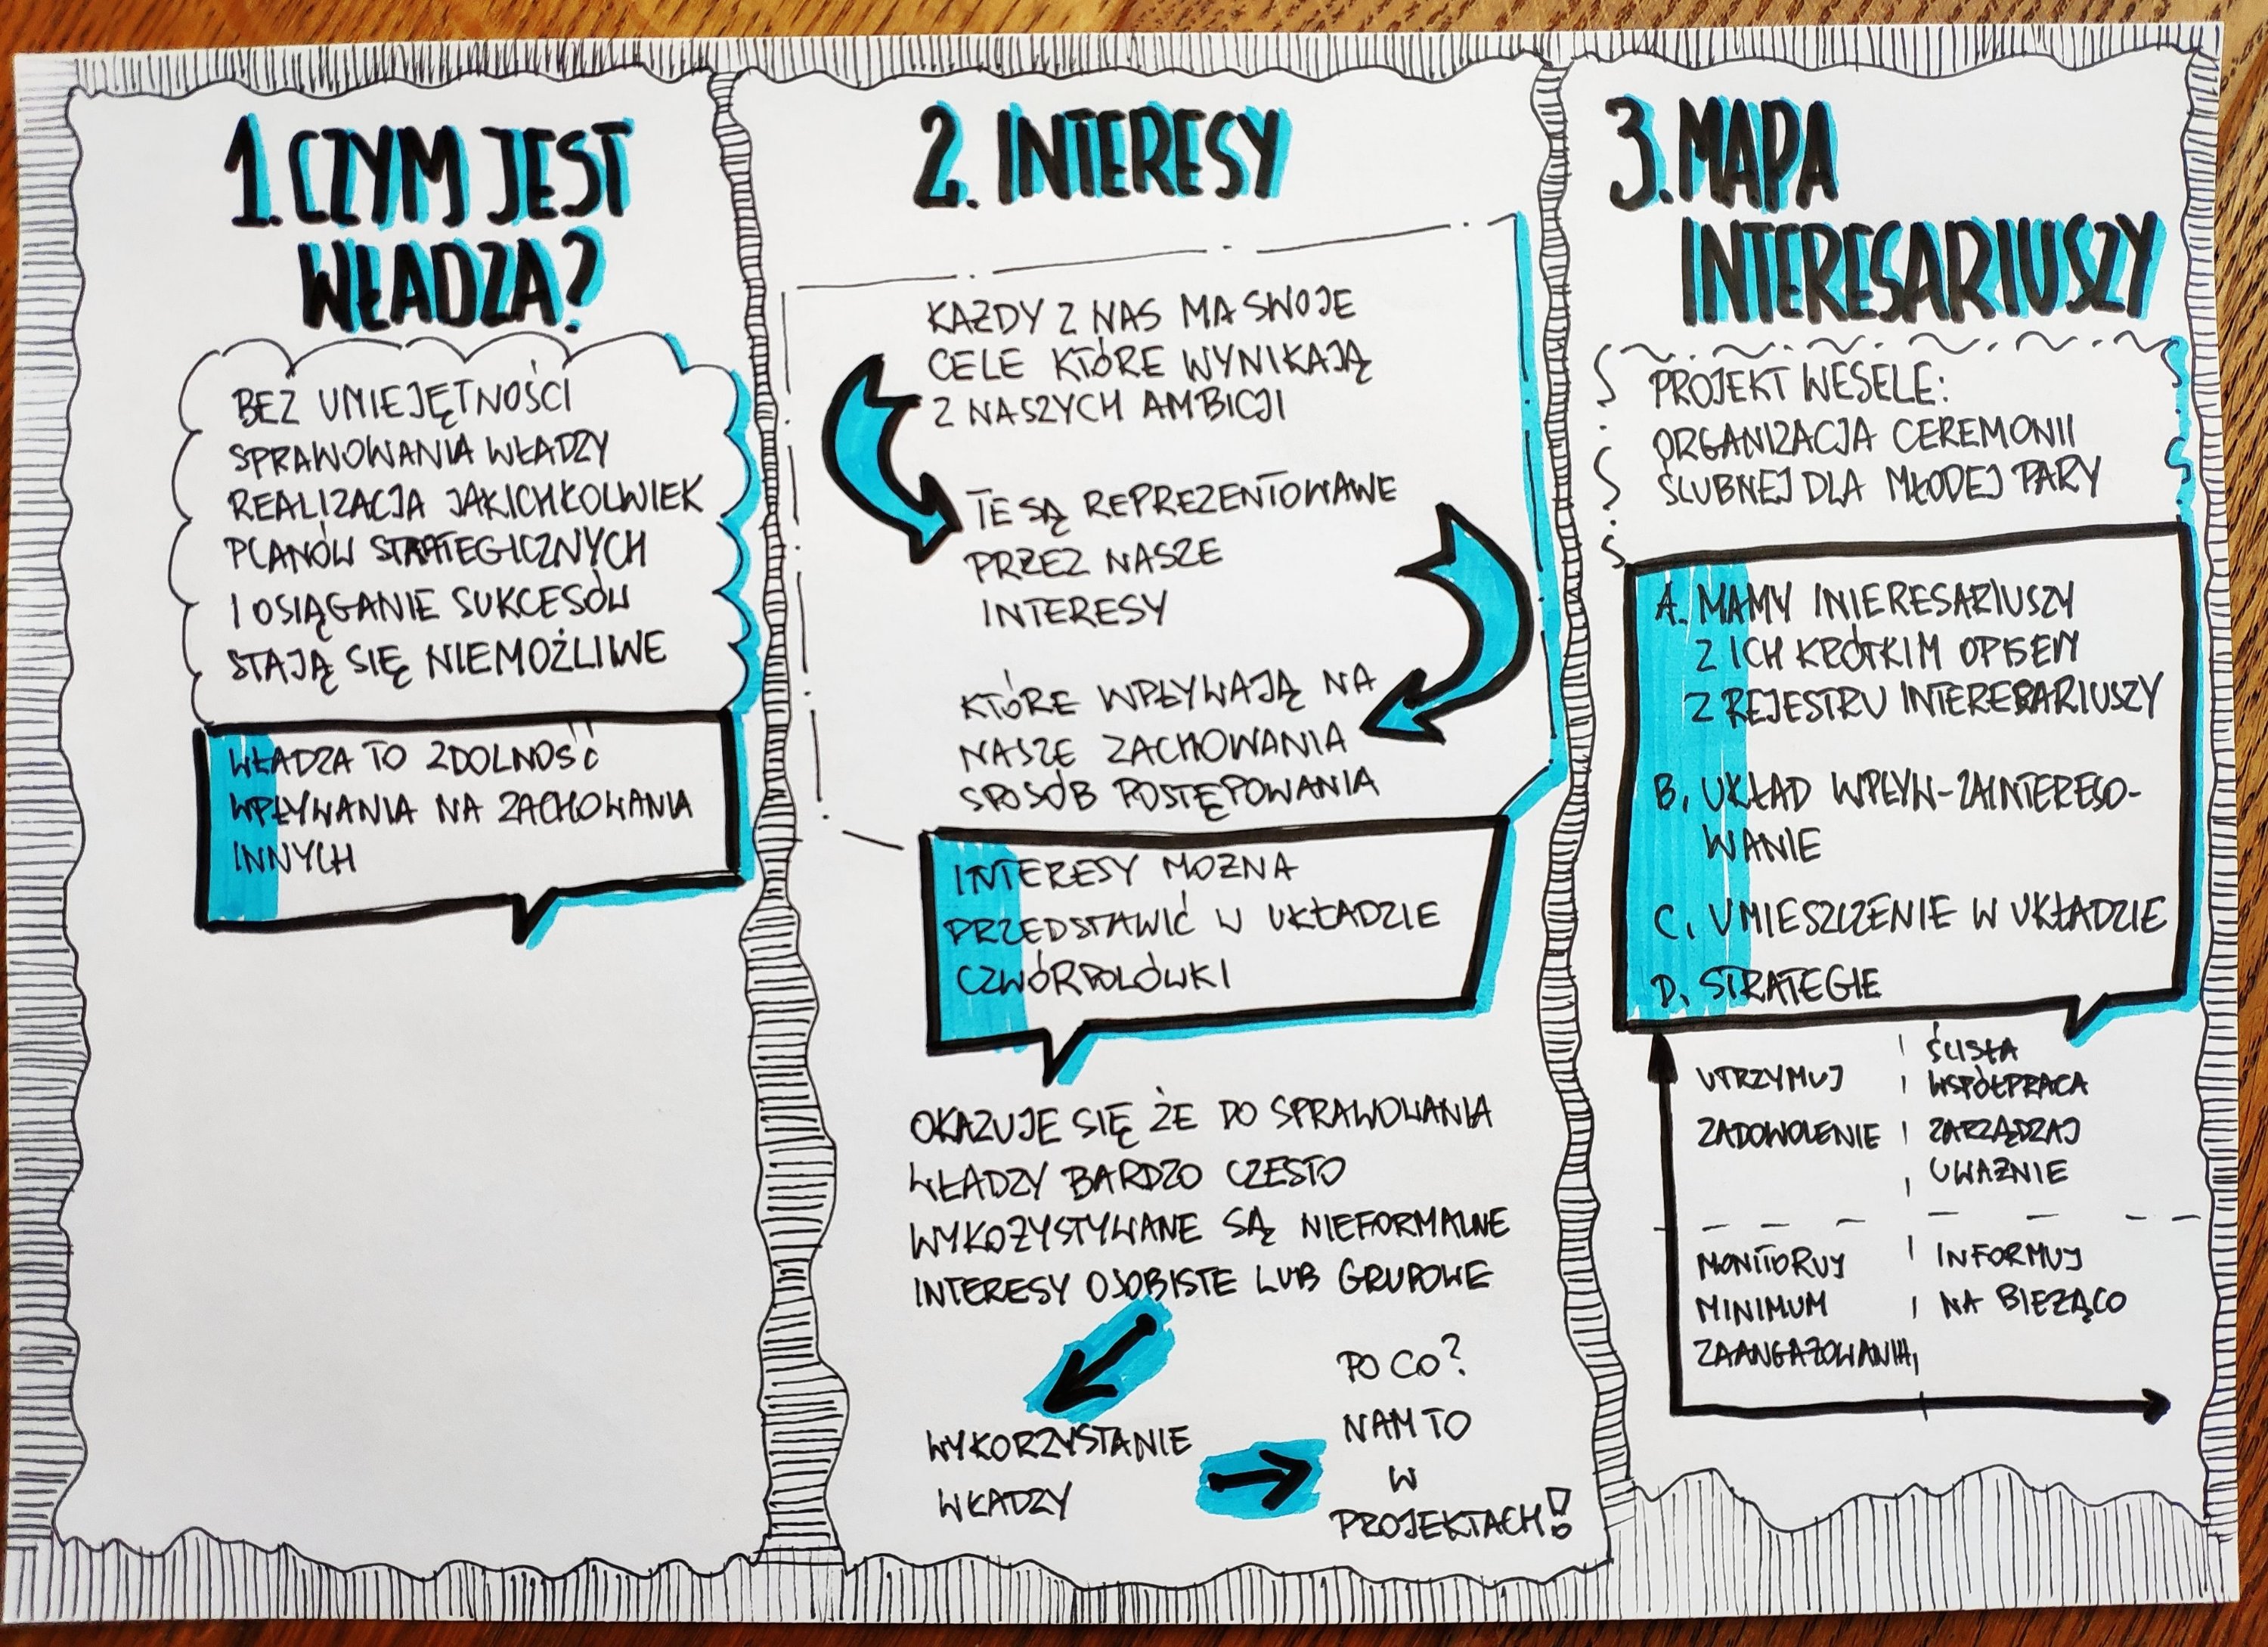 1. CZYM JEST
WŁADZA?
BEZ UMIEJĘTNOŚCI
SPRAWOWANIA WŁADZY
REALIZACJA JAKICHKOLWIEK
PLANÓW STRATEGICZNYCH
I OSIĄGANIE SUKCESÓW
STAJĄ SIĘ NIEMOŻLIWE
WŁADZA TO ZDOLNOŚĆ
WPŁYWANIA NA ZACHOWANIA
INNYCH
2. INTERESY
KAŻDY Z NAS MA SWOJE
CELE KTÓRE WYNIKAJĄ
Z NASZYCH AMBICJI
TE SĄ REPREZENTOWAWE
PRZEZ NASZE
INTERESY
KTÓRE WPŁYWAJĄ NA
NASZE ZACHOWANIA
SPOSÓB POSTĘPOWANIA
INTERESY MOZNA
PRZEDSTAWIĆ W UKŁADZIE
CZWÓRPOLÓWKI
OKAZUJE SIĘ ŻE DO SPRAWOWANIA
WŁADZY BARDZO CZESTO
WYKOZYSTYWANE SĄ NIEFORMALNE
INTERESY OSOBISTE LUB GRUPOWE
WYKORZYSTANIE
WŁADZY
PO CO?
NAM TO
W
PROJEKTACH!
3. MAPA
INTERESARIUSZY
PROJEKT WESELE:
ORGANIZACJA CEREMONII
ŚLUBNEJ DLA MŁODEJ PARY
A. MAMY INTERESARIUSZY
Z ICH KRÓTKIM OPISEM
Z REJESTRU INTERESARIUSZY
B. UKŁAD WPŁYW-ZAINTERESO-
WANIE
C. UMIESZCZENIE W UKŁADZIE
D. STRATEGIE
UTRZYMUJ
ZADOWOLENIE
ŚCISŁA
WSPÓŁPRACA
ZARZĄDZAJ
UWAŻNIE
MONITORUJ
MINIMUM
ZAANGAZOWANIA
INFORMUJ
NA BIEŻĄCO